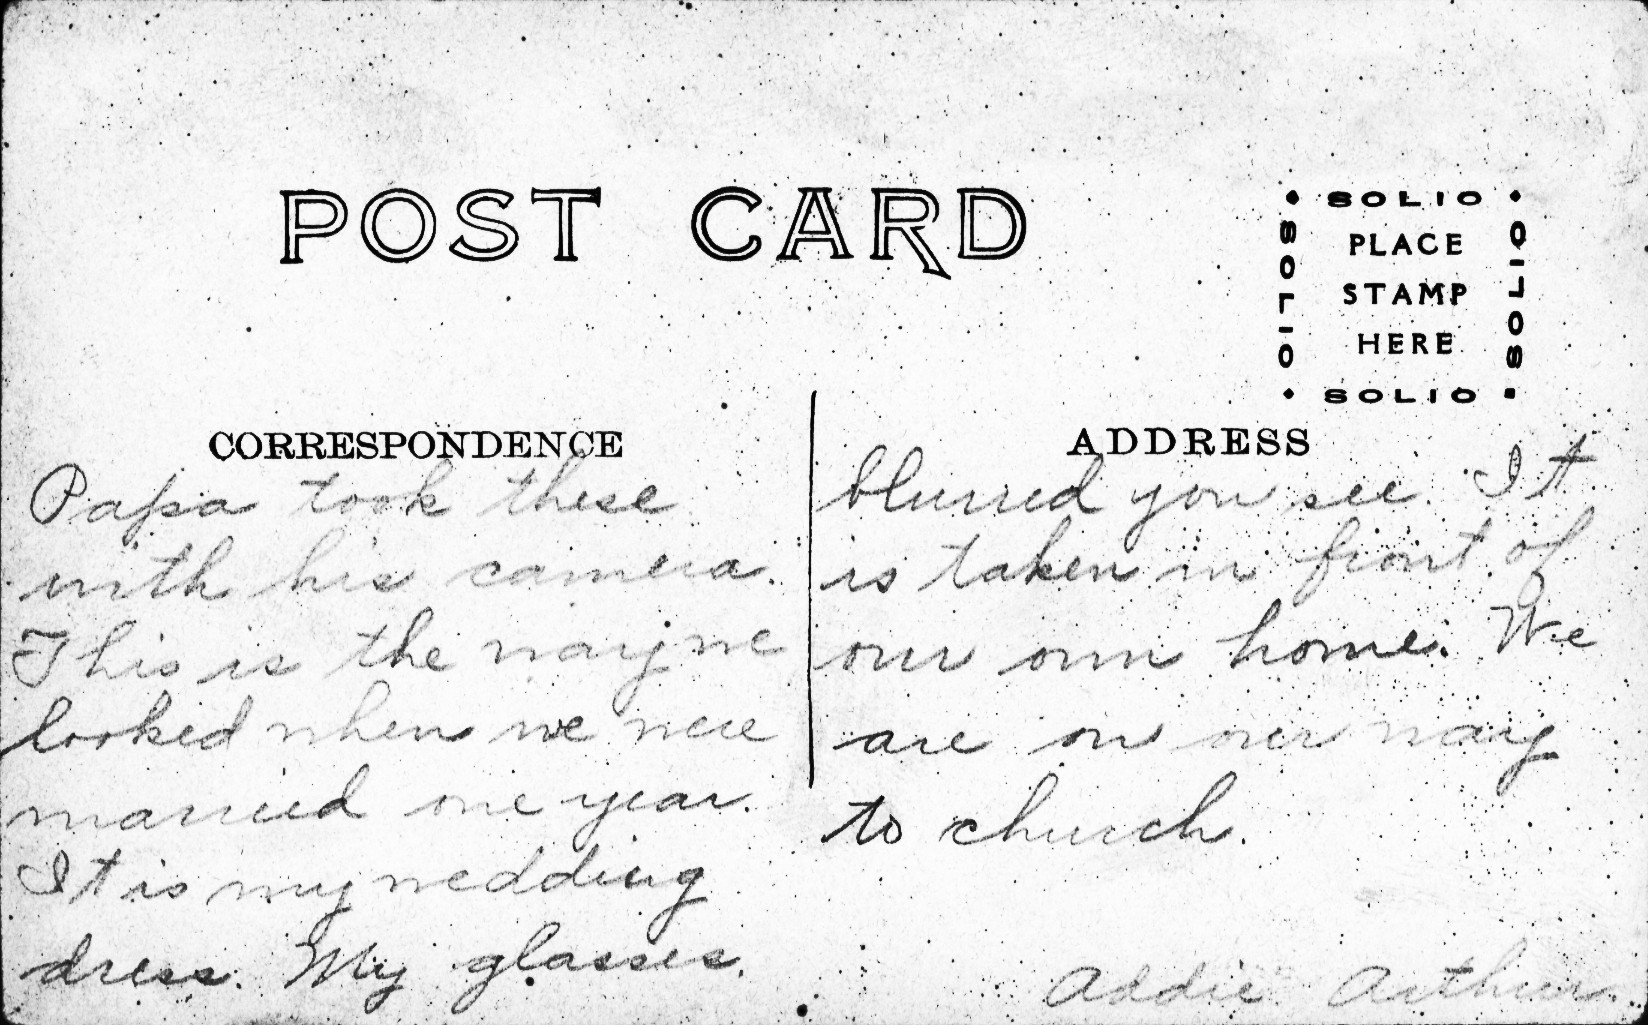 POST CARD
SOLIO
SOLIO
PLACE
STAMP
HERE
SOLIO
SOLIO
CORRESPONDENCE
Papa took these
with his camera.
This is the way we
looked when we were
married one year.
It is my wedding
dress. My glasses.
ADDRESS
blurred you see. It
is taken in front of
our own home. We
are on our way
to church.
Addie Arthur.